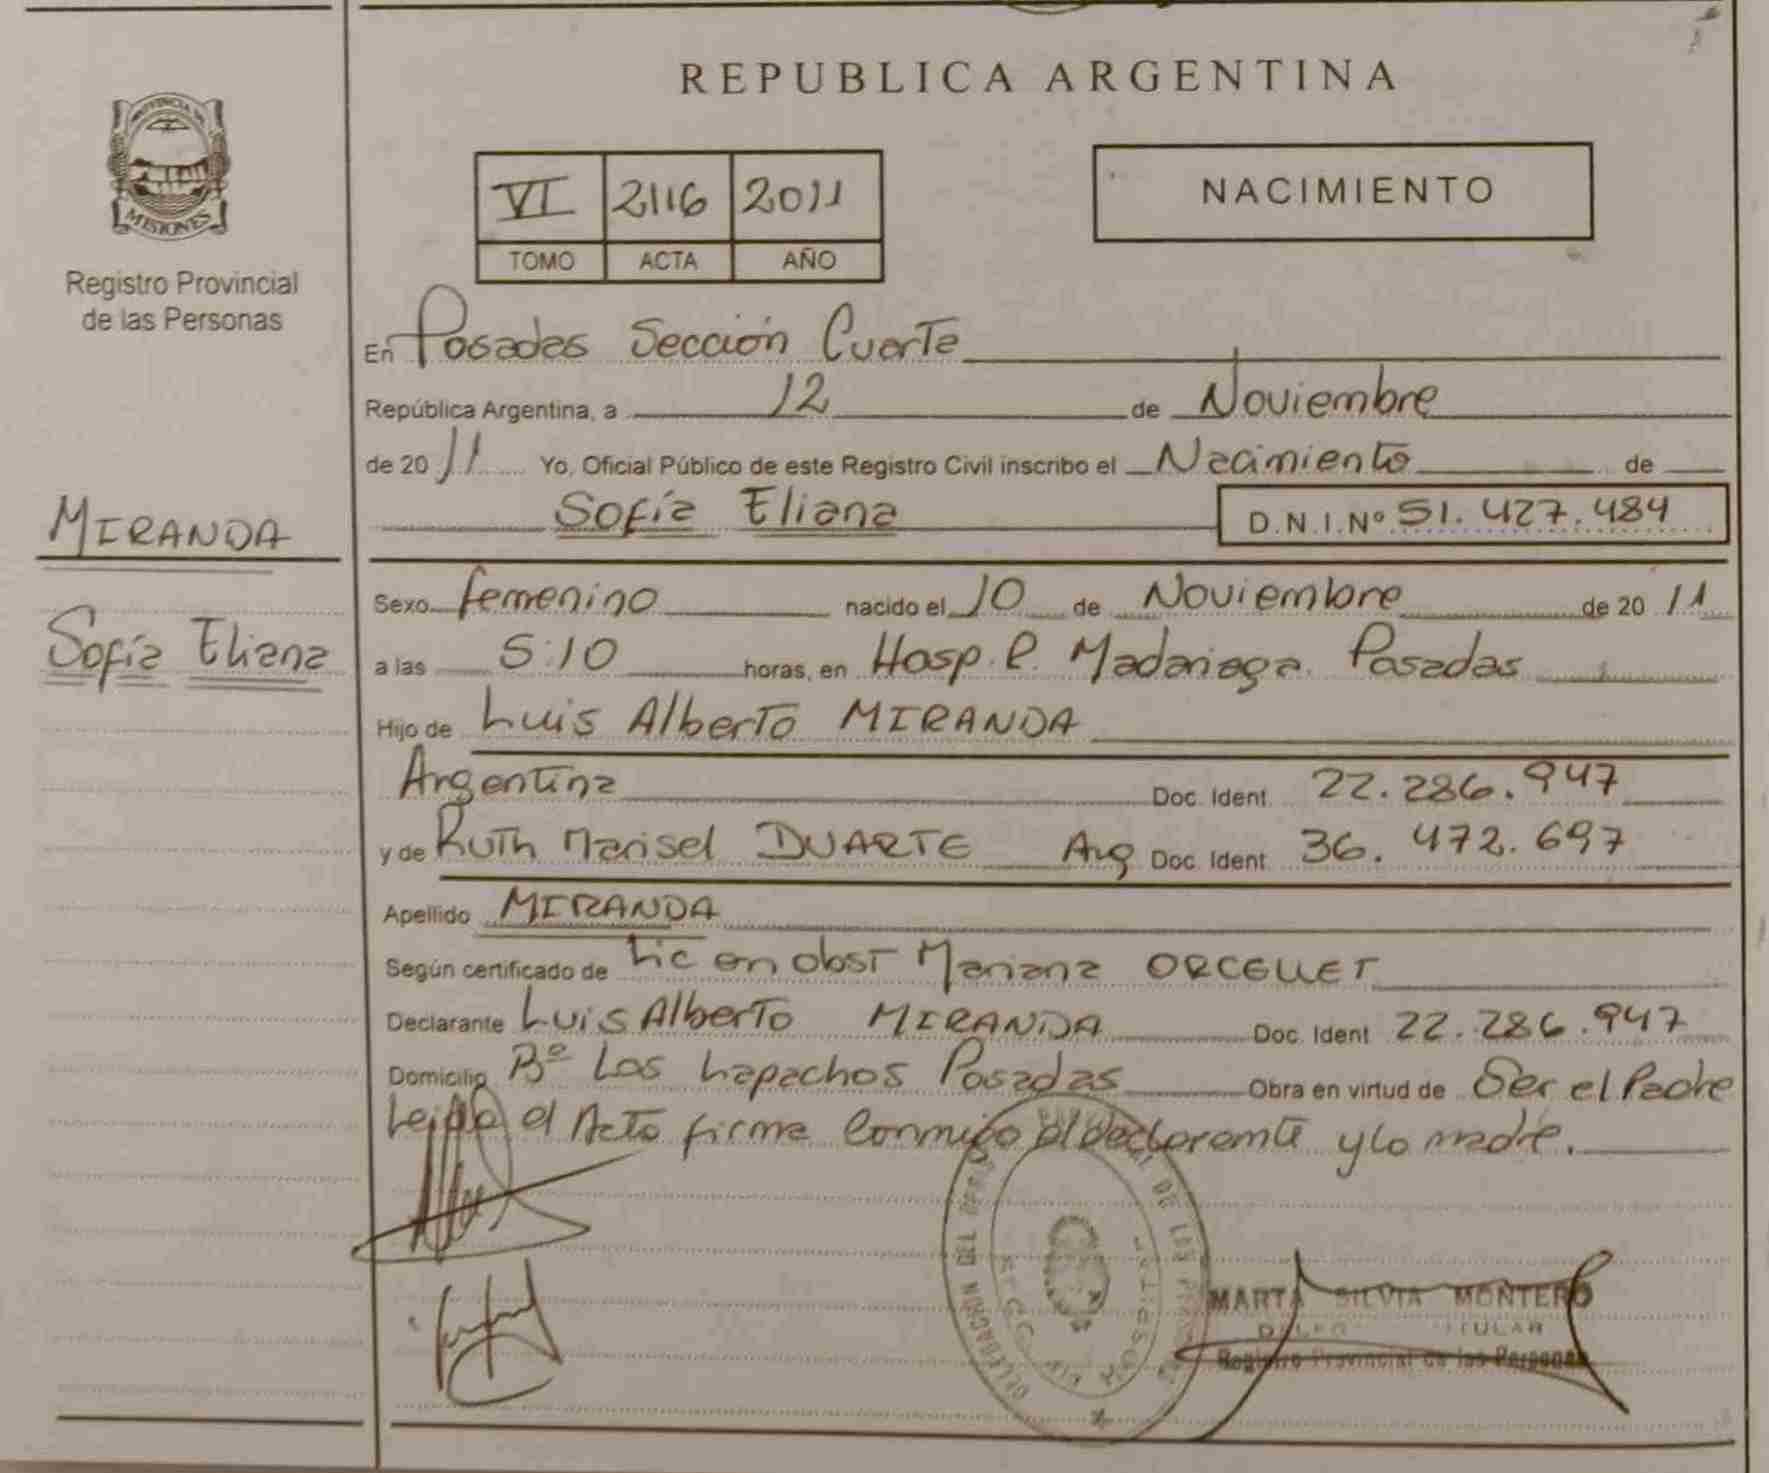 REPUBLICA ARGENTINA
PROVINCIA DE
MISIONES
Registro Provincial
de las Personas
VI 2116 2011
TOMO ACTA AÑO
NACIMIENTO
En Posadas Sección Cuarta
República Argentina, a 12 de Noviembre
de 20 11 Yo, Oficial Público de este Registro Civil inscribo el Nacimiento de
Sofía Eliana D.N.I.Nº 51.427.484
MIRANDA
Sofía Eliana
Sexo femenino nacido el 10 de Noviembre de 20 11
a las 5:10 horas, en Hosp. R. Madariaga. Posadas
Hijo de Luis Alberto MIRANDA
Argentina Doc. Ident. 22.286.947
y de Ruth Marisel DUARTE Arg Doc. Ident. 36.472.697
Apellido MIRANDA
Según certificado de Lic en obst Mariana ORCELLET
Declarante Luis Alberto MIRANDA Doc. Ident. 22.286.947
Domicilio Bº Los Lapachos Posadas Obra en virtud de Ser el Padre
Leida el Acta firma conmigo el declarante y la madre.
DELEGACION DEL DE LAS
MARTA SILVIA MONTERO
TITULAR
Registro Provincial de las Personas